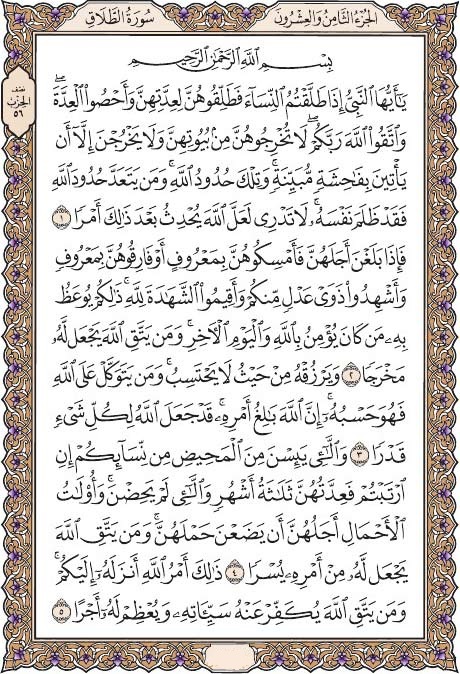 سُورَةُ الطَّلَاقِ
الجُزْءُ الثَّامِنُ وَالعِشْرُونَ
نصف
الحزب
٥٦
بِسْمِ اللَّهِ الرَّحْمَٰنِ الرَّحِيمِ
يَٰٓأَيُّهَا النَّبِيُّ إِذَا طَلَّقْتُمُ النِّسَآءَ فَطَلِّقُوهُنَّ لِعِدَّتِهِنَّ وَأَحْصُوا۟ الْعِدَّةَ ۖ
وَاتَّقُوا۟ اللَّهَ رَبَّكُمْ ۖ لَا تُخْرِجُوهُنَّ مِنۢ بُيُوتِهِنَّ وَلَا يَخْرُجْنَ إِلَّآ أَن
يَأْتِينَ بِفَٰحِشَةٍ مُّبَيِّنَةٍ ۚ وَتِلْكَ حُدُودُ اللَّهِ ۚ وَمَن يَتَعَدَّ حُدُودَ اللَّهِ
فَقَدْ ظَلَمَ نَفْسَهُۥ ۚ لَا تَدْرِى لَعَلَّ اللَّهَ يُحْدِثُ بَعْدَ ذَٰلِكَ أَمْرًا ١
فَإِذَا بَلَغْنَ أَجَلَهُنَّ فَأَمْسِكُوهُنَّ بِمَعْرُوفٍ أَوْ فَارِقُوهُنَّ بِمَعْرُوفٍ
وَأَشْهِدُوا۟ ذَوَىْ عَدْلٍ مِّنكُمْ وَأَقِيمُوا۟ الشَّهَٰدَةَ لِلَّهِ ۚ ذَٰلِكُمْ يُوعَظُ
بِهِۦ مَن كَانَ يُؤْمِنُ بِاللَّهِ وَالْيَوْمِ الْءَاخِرِ ۚ وَمَن يَتَّقِ اللَّهَ يَجْعَل لَّهُۥ
مَخْرَجًا ٢ وَيَرْزُقْهُ مِنْ حَيْثُ لَا يَحْتَسِبُ ۚ وَمَن يَتَوَكَّلْ عَلَى اللَّهِ
فَهُوَ حَسْبُهُۥٓ ۚ إِنَّ اللَّهَ بَٰلِغُ أَمْرِهِۦ ۚ قَدْ جَعَلَ اللَّهُ لِكُلِّ شَىْءٍ
قَدْرًا ٣ وَالَّٰٓـِٔى يَئِسْنَ مِنَ الْمَحِيضِ مِن نِّسَآئِكُمْ إِنِ
ارْتَبْتُمْ فَعِدَّتُهُنَّ ثَلَٰثَةُ أَشْهُرٍ وَالَّٰٓـِٔى لَمْ يَحِضْنَ ۚ وَأُو۟لَٰتُ
الْأَحْمَالِ أَجَلُهُنَّ أَن يَضَعْنَ حَمْلَهُنَّ ۚ وَمَن يَتَّقِ اللَّهَ
يَجْعَل لَّهُۥ مِنْ أَمْرِهِۦ يُسْرًا ٤ ذَٰلِكَ أَمْرُ اللَّهِ أَنزَلَهُۥٓ إِلَيْكُمْ ۚ
وَمَن يَتَّقِ اللَّهَ يُكَفِّرْ عَنْهُ سَيِّـَٔاتِهِۦ وَيُعْظِمْ لَهُۥٓ أَجْرًا ٥